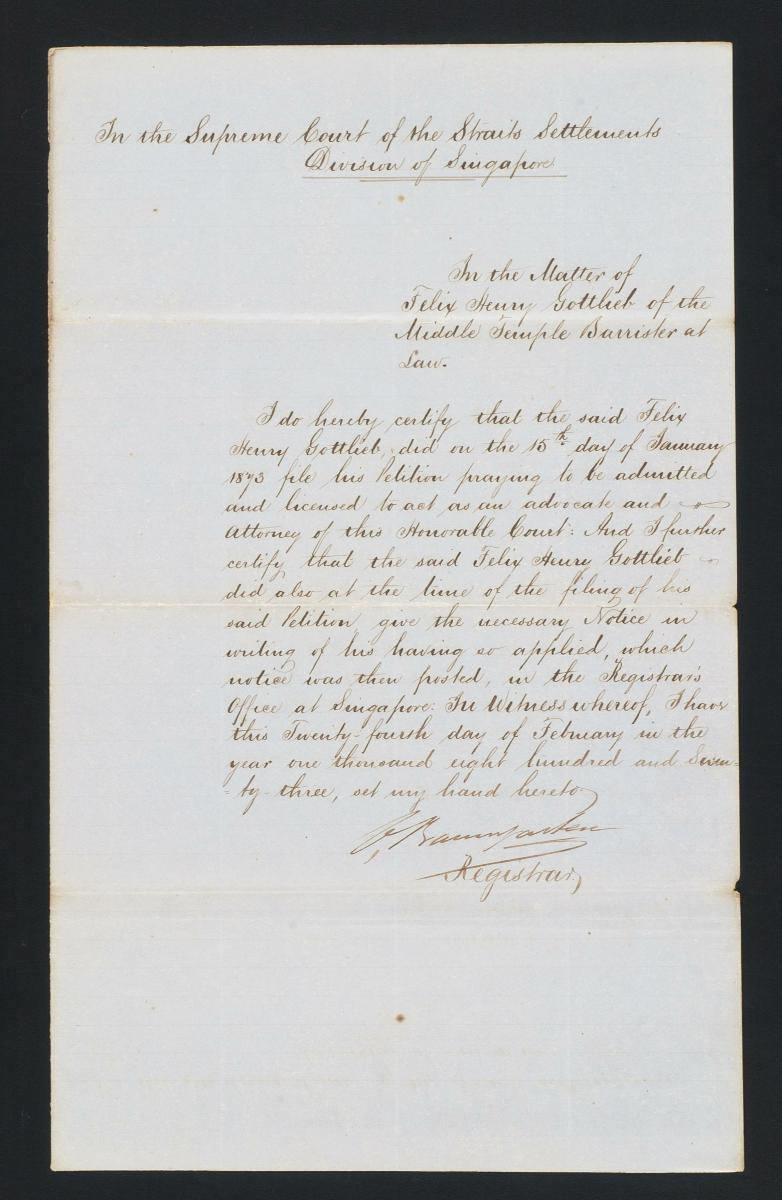 In the Supreme Court of the Straits Settlements
Division of Singapore
In the Matter of
Felix Henry Gottlieb of the
Middle Temple Barrister at
Law.
I do hereby certify that the said Felix
Henry Gottlieb, did on the 15th day of January
1873 file his Petition praying to be admitted
and licensed to act as an advocate and
Attorney of this Honorable Court: And I further
certify that the said Felix Henry Gottlieb
did also at the time of the filing of his
said Petition give the necessary Notice in
writing of his having so applied, which
notice was then posted, in the Registrar's
Office at Singapore: In Witness whereof, I have
this Twenty-fourth day of February in the
year one thousand eight hundred and Seven-
-ty-three, set my hand hereto
C. Baumgarten
Registrar,